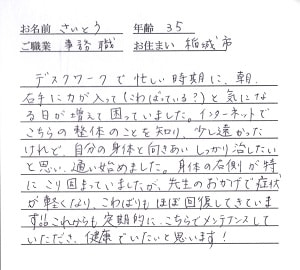 お名前 さいとう 年齢 35
ご職業 事務職 お住まい 稲城市
デスクワークで忙しい時期に、朝、
右手に力が入って(こわばっている?)と気にな
る日が増えて困っていました。インターネットで
こちらの整体のことを知り、少し遠かった
けれど、自分の身体と向きあいしっかり治したい
と思い、通い始めました。身体の右側が特
にこり固まっていましたが、先生のおかげで症状
が軽くなり、こわばりもほぼ回復してきていま
す。これからも定期的に、こちらでメンテナンスして
いただき、健康でいたいと思います!